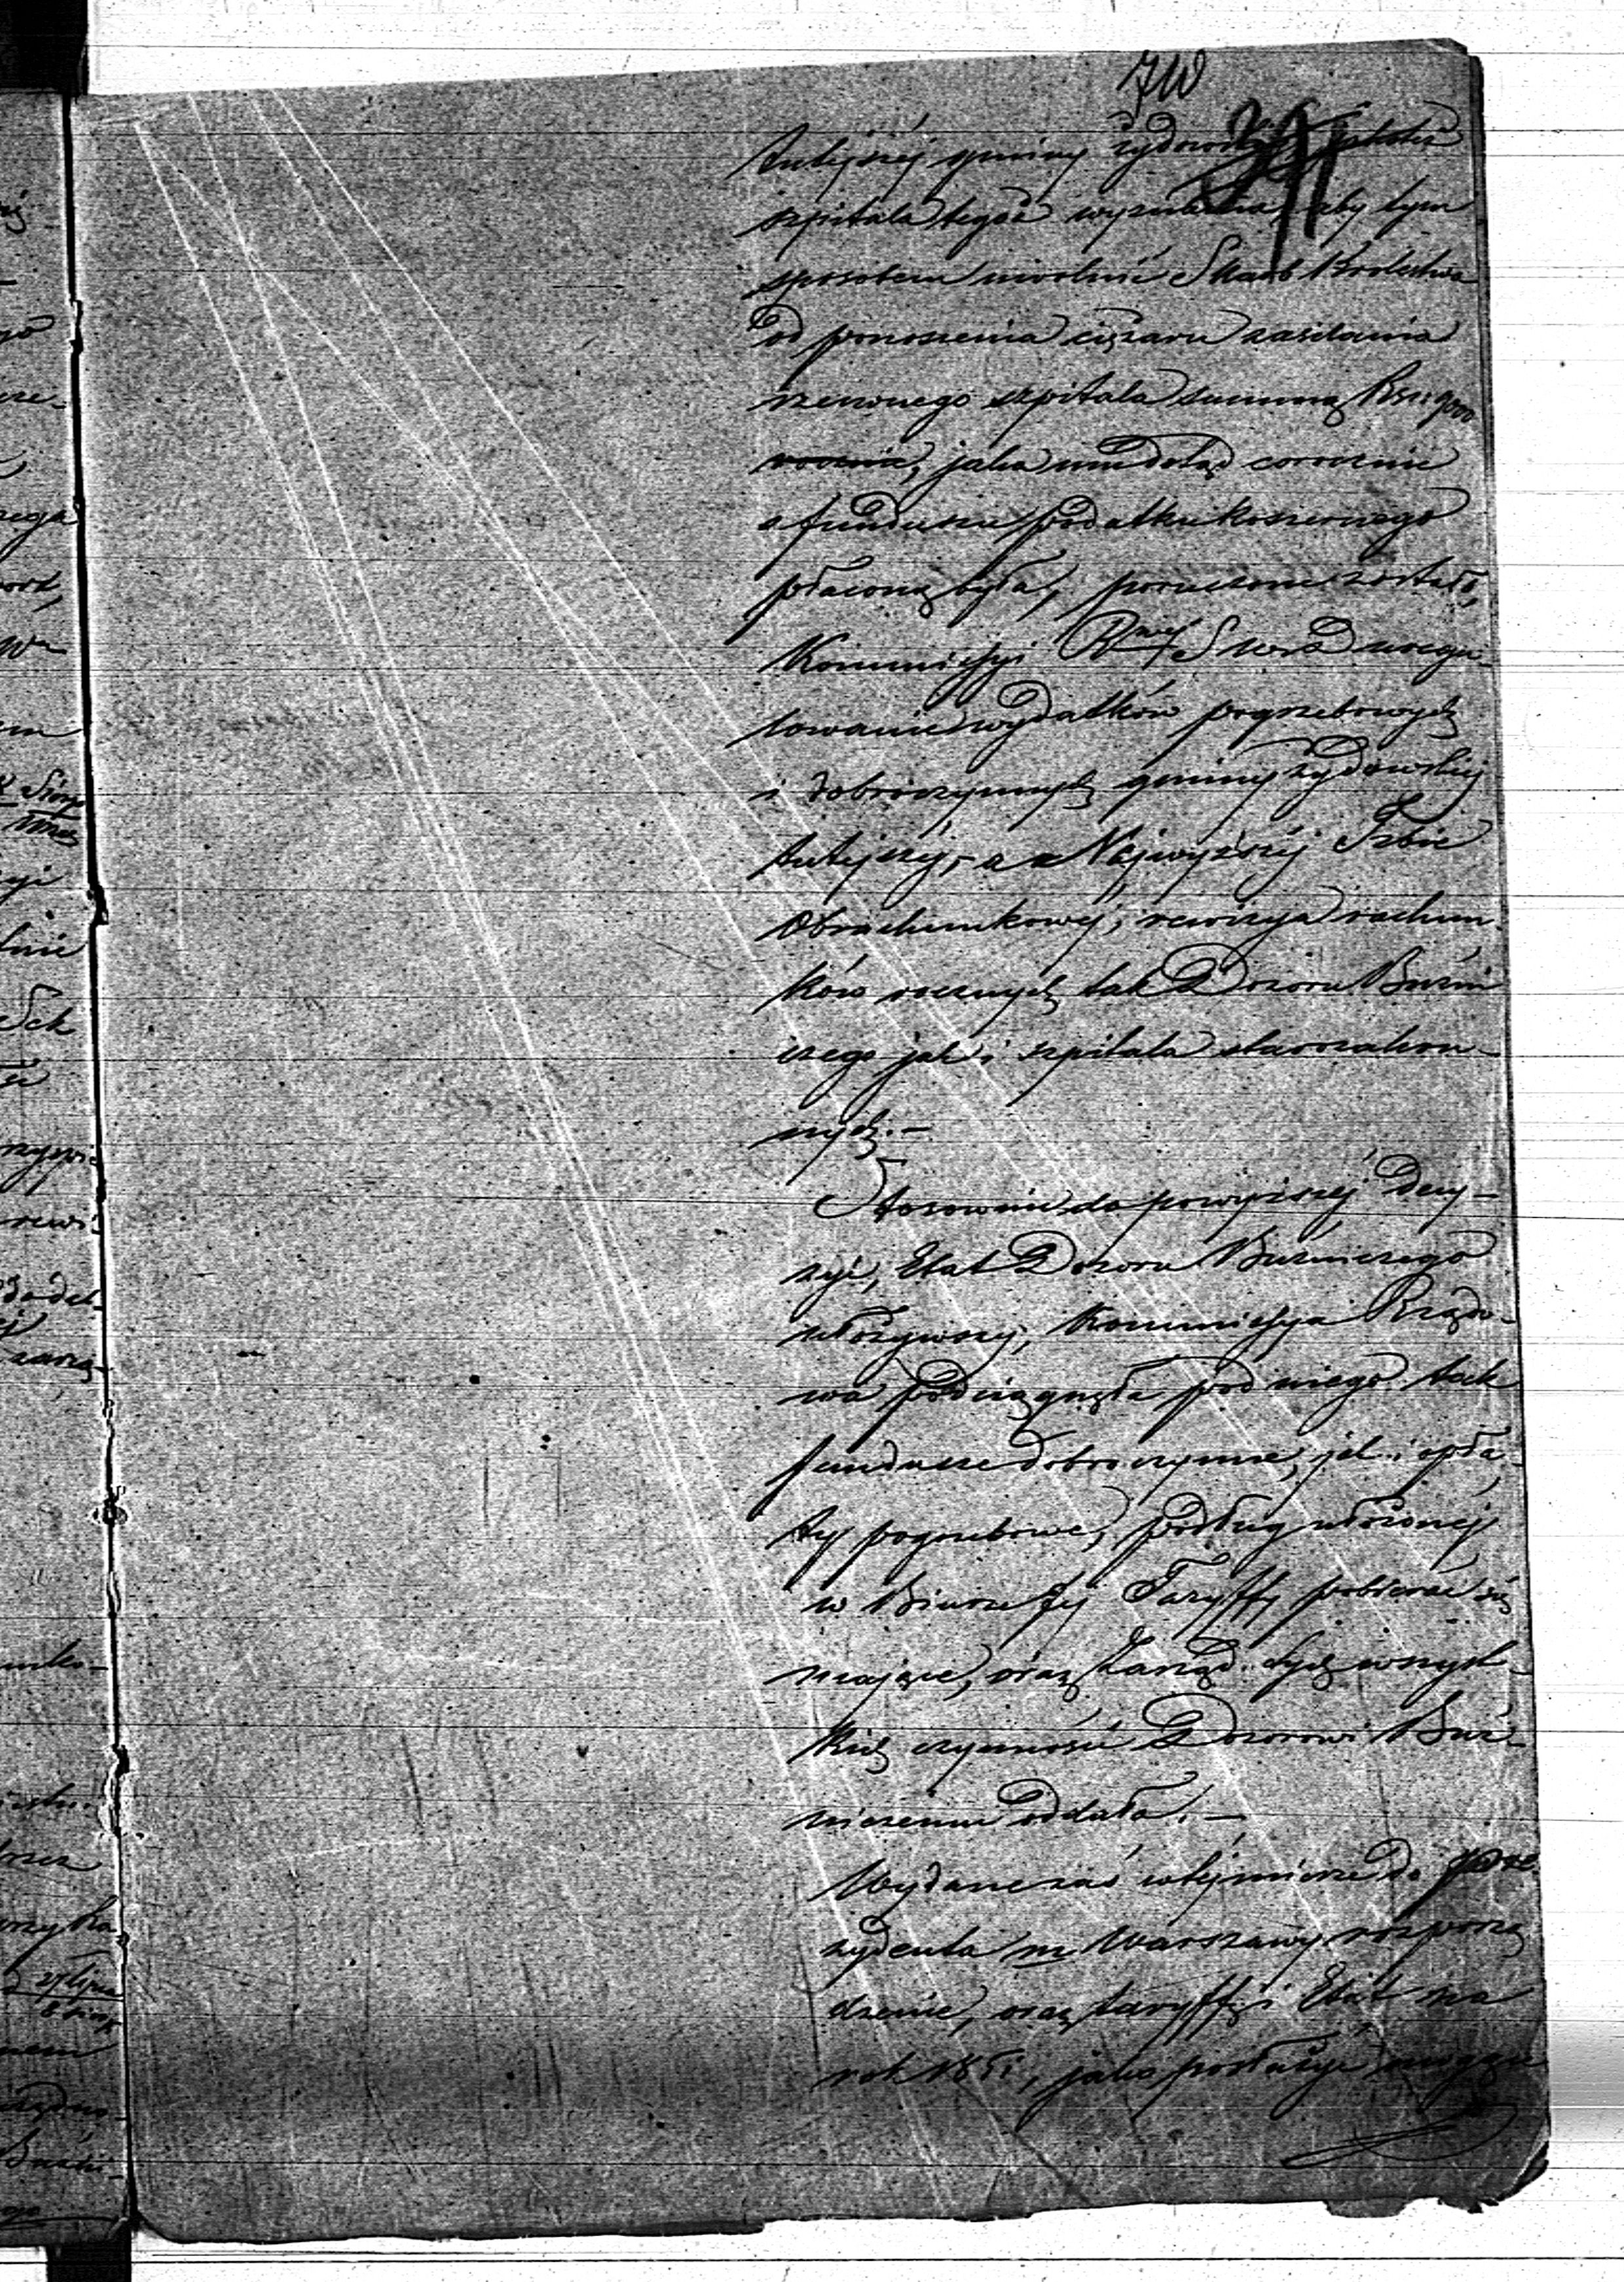 tutejszéj gminy żydowskiéj
szpitala tegoż wyznania, aby tym
sposobem uwolnić Skarb Królestwa
od ponoszenia ciężaru zasilania
rzeczonego szpitala summą Rsr 9000
rocznie, jaka mu dotąd corocznie
z funduszu podatku koszernego
płaconą była, poruczone zostało,
Kommissyi Rząd S W i D uregu-
lowanie wydatków pogrzebowych
i dobroczynnych gminy żydowskiéj
tutejszéj, a Najwyższéj Izbie
Obrachunkowéj, rewizya rachun-
ków rocznych tak Dozoru Bóżni
czego jak i szpitala starozakon-
nych.—
Stosownie do powyższéj decy-
zyi, Etat Dozoru Bóżniczego
ułożywszy, Kommissya Rządo-
wa podciągnęła pod niego tak
fundusze dobroczynne, jak i opła-
ty pogrzebowe, podług ułożonéj
w Biurze Jéj Taryffy pobierać się
mające, oraz Zarząd tych wszyst-
kich czynności Dozorowi Bóż-
niczemu oddała.—
Wydane zaś w téj mierze do Pre
zydenta m Warszawy rozporzą
dzenie, oraz taryffy i Etat na
rok 1851, jako posłużyć mogące